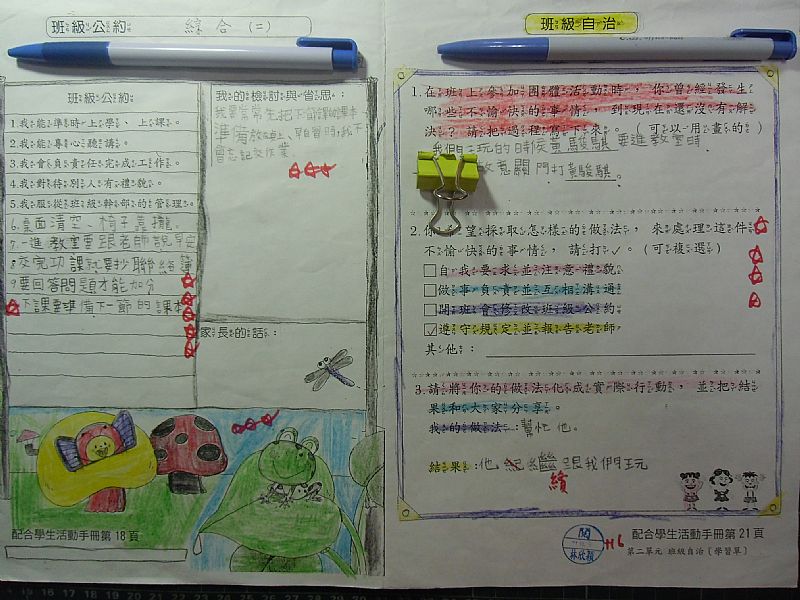 班級公約
綜合(二)
班級公約
1.我能準時上學、上課。
2.我能專心聽講。
3.我會負責任完成工作。
4.我對待別人有禮貌。
5.我服從班級幹部的管理。
6.桌面清空、椅子靠攏。
7.一進教室要跟老師說早安
8.交完功課就要抄聯絡簿
9.要回答問題才能加分
下課要準備下一節的課本
我的檢討與省思:
我要常常先把下節課的課本
準備放桌上、早自習時,我不
會忘記交作業
家長的話:
配合學生活動手冊第18頁
班級自治
1.在班上參加團體活動時,你曾經發生
哪些不愉快的事情,到現在還沒有解
決?請把過程寫下來。(可以用畫的)
我們去玩的時候黃駿騏要進教室時
故意關門打黃駿騏。
2.你希望採取怎樣的做法,來處理這件
不愉快的事情,請打✓。(可複選)
□自我要求並注意禮貌
□做事負責並互相溝通
□開班會修改班級公約
☑遵守規定並報告老師
其他:
3.請將你的做法化成實際行動,並把結
果和大家分享。
我的做法:幫忙他。
結果:他繼跟我們玩
續
閱
林欣穎
配合學生活動手冊第21頁
第二單元 班級自治〔學習單〕